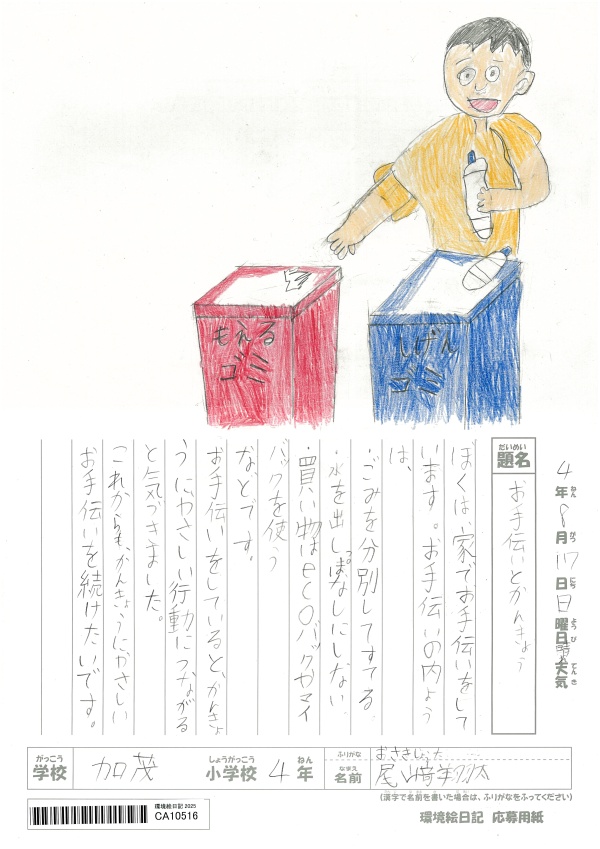 もえる
ゴミ
しげん
ゴミ
4年8月17日日曜日晴れ天気
ねん がつ にち ようび てんき
だいめい
題名
お手伝いとかんきょう
ぼくは、家でお手伝いをして
います。お手伝いの内よう
は、
・ごみを分別してすてる
・水を出しっぱなしにしない
・買い物はecoバックやマイ
バックを使う
などです。
お手伝いをしていると、かんきょ
うにやさしい行動につながる
と気づきました。
これからも、かんきょうにやさしい
お手伝いを続けたいです。
がっこう しょうがっこう ねん
学校 加茂 小学校 4年
ふりがな おさきしょうた
なまえ
名前 尾﨑
(漢字で名前を書いた場合は、ふりがなをふってください)
環境絵日記 2025
CA10516
環境絵日記 応募用紙